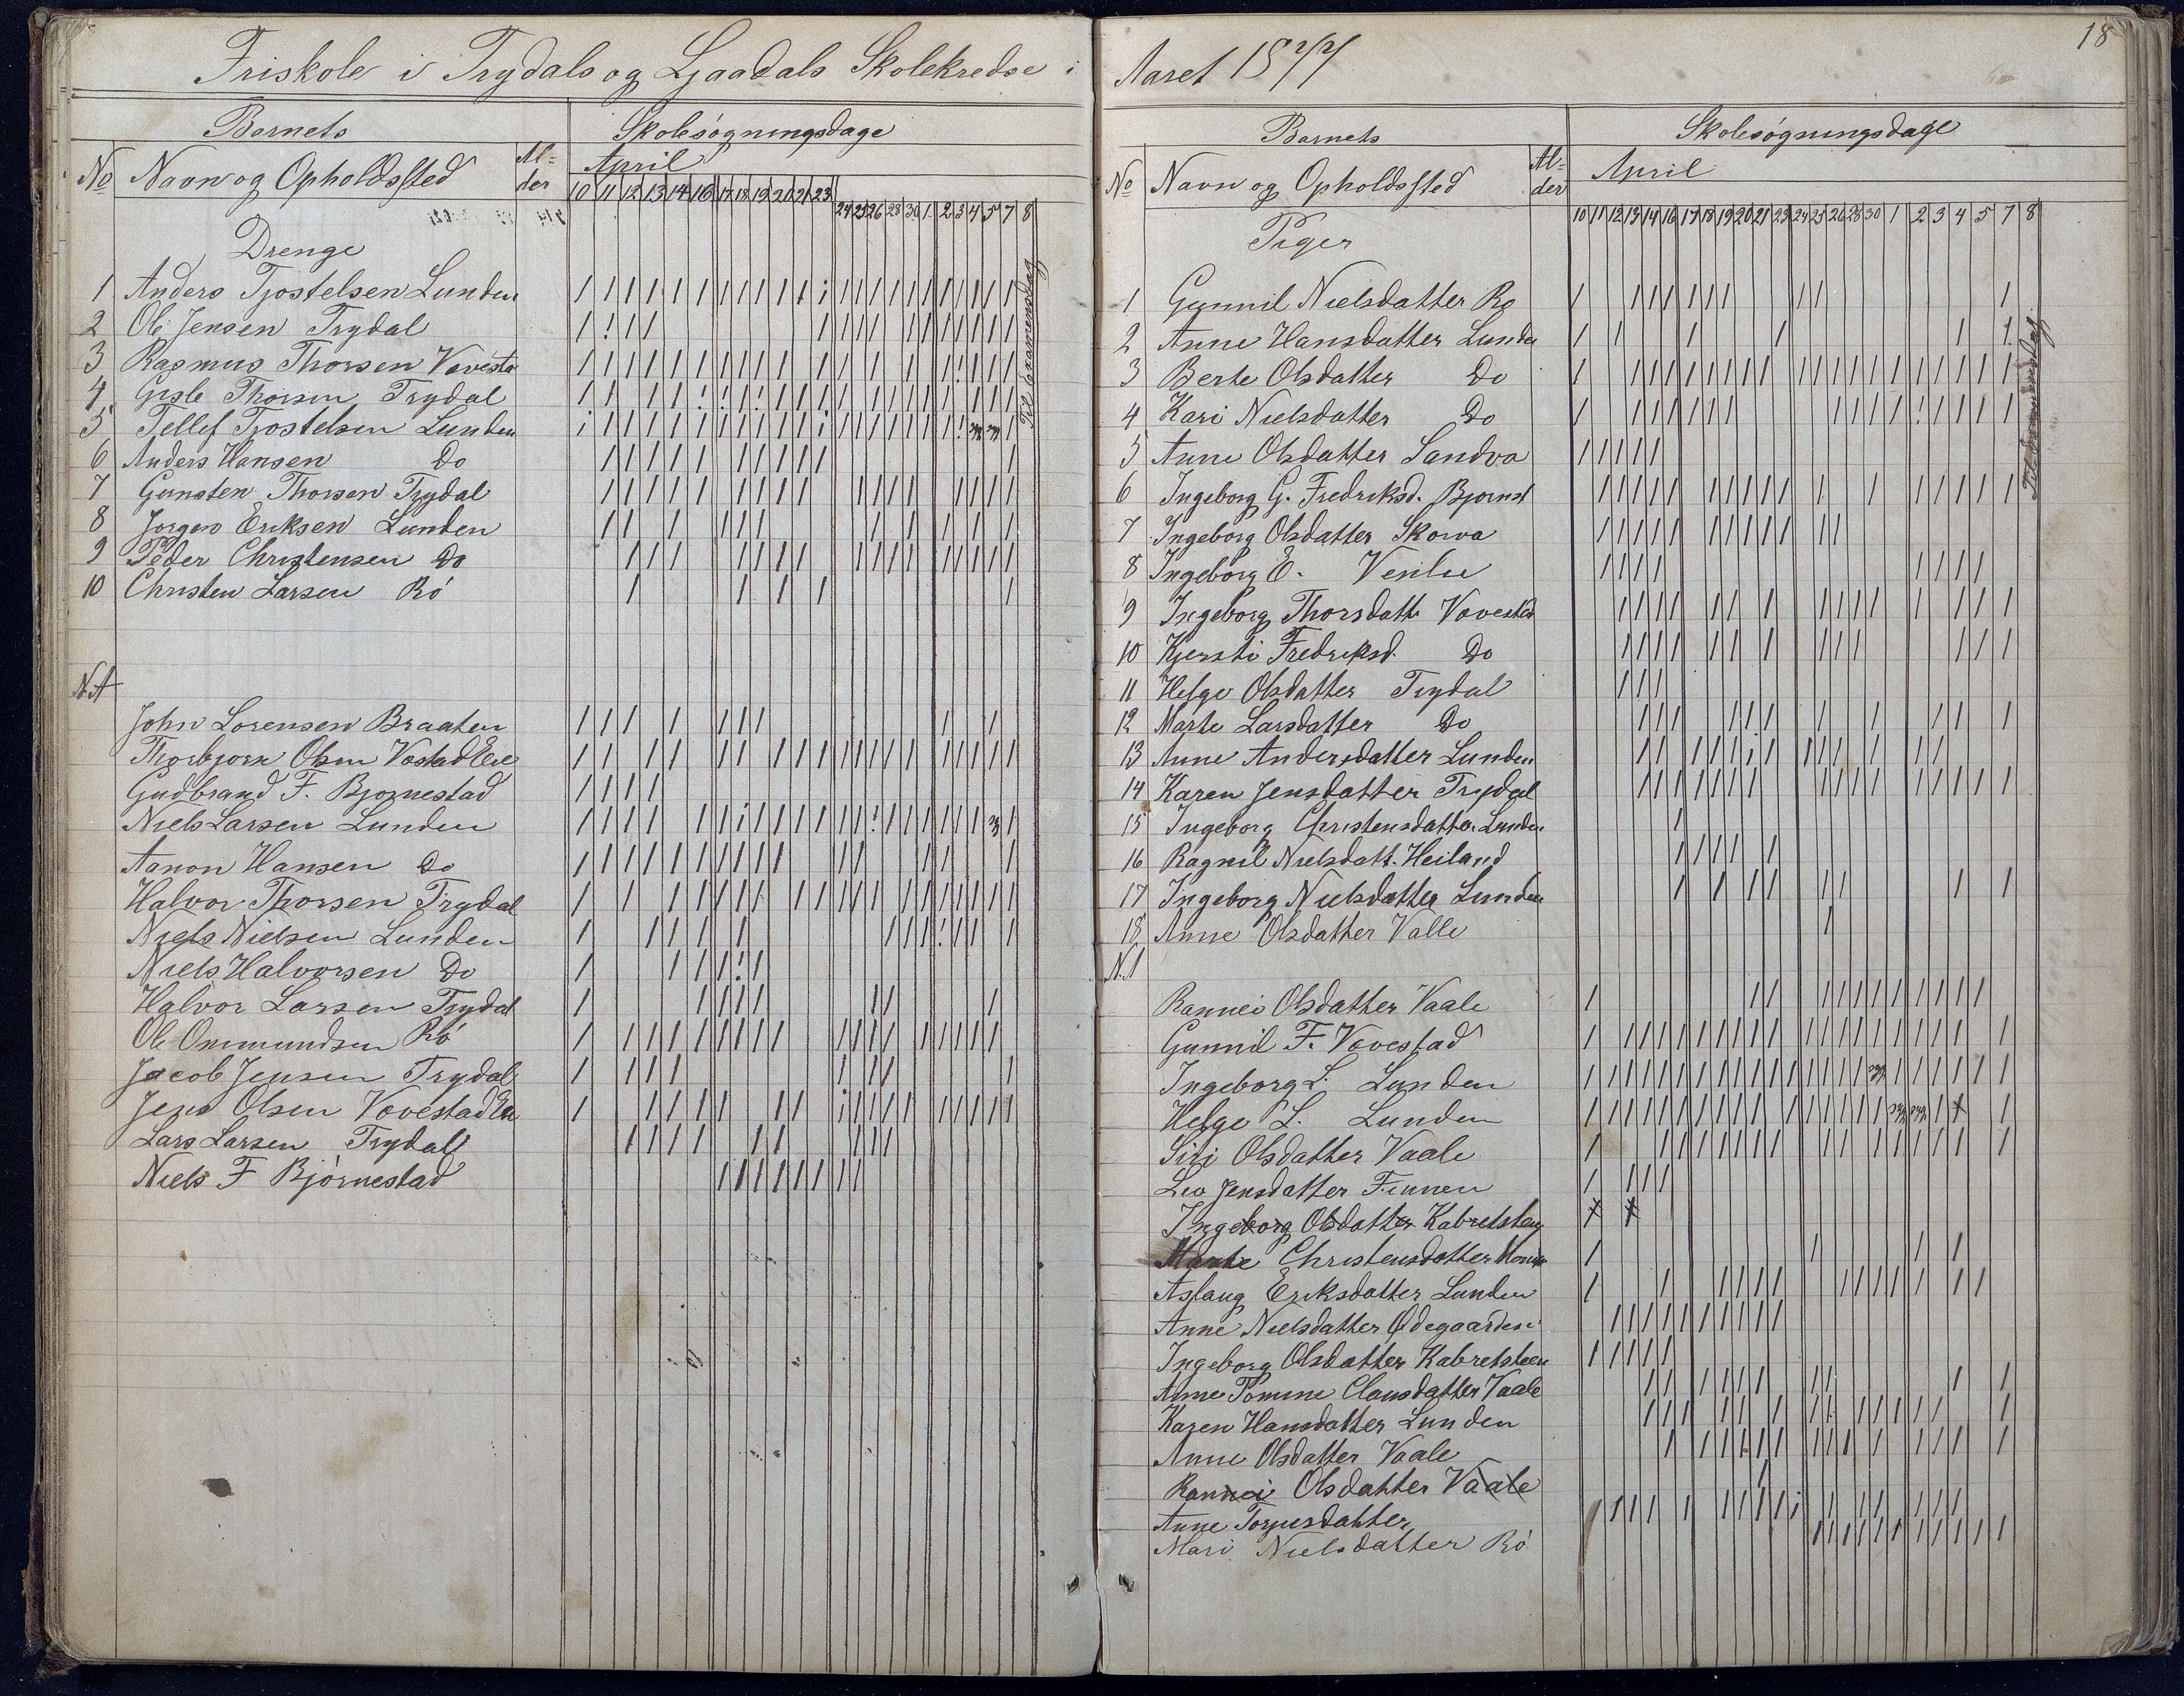 Friskole i Trydals og Ljaadals Skolekredse i
Barnets Skolesøgningsdage
No Navn og Opholdssted Al= der April
10 11 12 13 14 16 17 18 19 20 21 23 24 25 26 28 30 1 2 3 4 5 7 8
Drenge
1 Anders Tjostelsen Lunden
2 Ole Jensen Trydal
3 Rasmus Thorsen Vovesta
4 Gisle Thorsen Trydal
5 Tellef Tjostelsen Lunden
6 Anders Hansen Do
7 Gunsten Thorsen Trydal
8 Jorgen Eriksen Lunden
9 Peder Christensen Do
10 Christen Larsen Ró
Til Examensdag
N.A
John Lorensen Braaten
Thorbjorn Olsen Vostad Eie
Gudbrand F. Bjornestad
Niels Larsen Lunden
Aanon Hansen Do
Halvor Thorsen Trydal
Niels Nielsen Lunden
Niels Halvorsen Do
Halvor Larsen Trydal
Ole Ommundsen Ró
Jacob Jensen Trydal
Jens Olsen Vovestad
Lars Larsen Trydal
Niels F Bjórnestad
Aaret 1877
18
Barnets Skolesøgningsdage
No Navn og Opholdssted Al= der April
10 11 12 13 14 16 17 18 19 20 21 23 24 25 26 28 30 1 2 3 4 5 7 8
Piger
1 Gunnil Nielsdatter Ro
2 Anne Hansdatter Lunden
3 Berte Olsdatter Do
4 Kari Nielsdatter Do
5 Anne Olsdatter Sandva
6 Ingeborg G. Fredriksd. Bjornst
7 Ingeborg Olsdatter Skorva
8 Ingeborg E.
9 Ingeborg Thorsdatt. Vovestad
10 Kjersti Fredriksd. Do
11 Helge Olsdatter Trydal
12 Marte Larsdatter Do
13 Anne Andersdatter Lunden
14 Karen Jensdatter Trydal
15 Ingeborg Christensdatter Lunden
16 Ragnil Nielsdatt. Heiland
17 Ingeborg Nielsdatter Lunden
18 Anne Olsdatter Valle
N.A
Rannei Olsdatter Vaale
Gunnil F. Vovestad
Ingeborg L. Lunden
Helge L. Lunden
Siri Olsdatter Vaale
Lea Jensdatter Finnen
Ingeborg Olsdatter Kabretsteen
Marte Christensdatter
Aslaug Eriksdatter Lunden
Anne Nielsdatter Ødegaarden
Ingeborg Olsdatter Kabretsteen
Anne Tomine Clausdatter Vaale
Karen Hansdatter Lunden
Anne Olsdatter Vaale
Rannei Olsdatter Vaale
Anne Torjusdatter
Mari Nielsdatter Ró